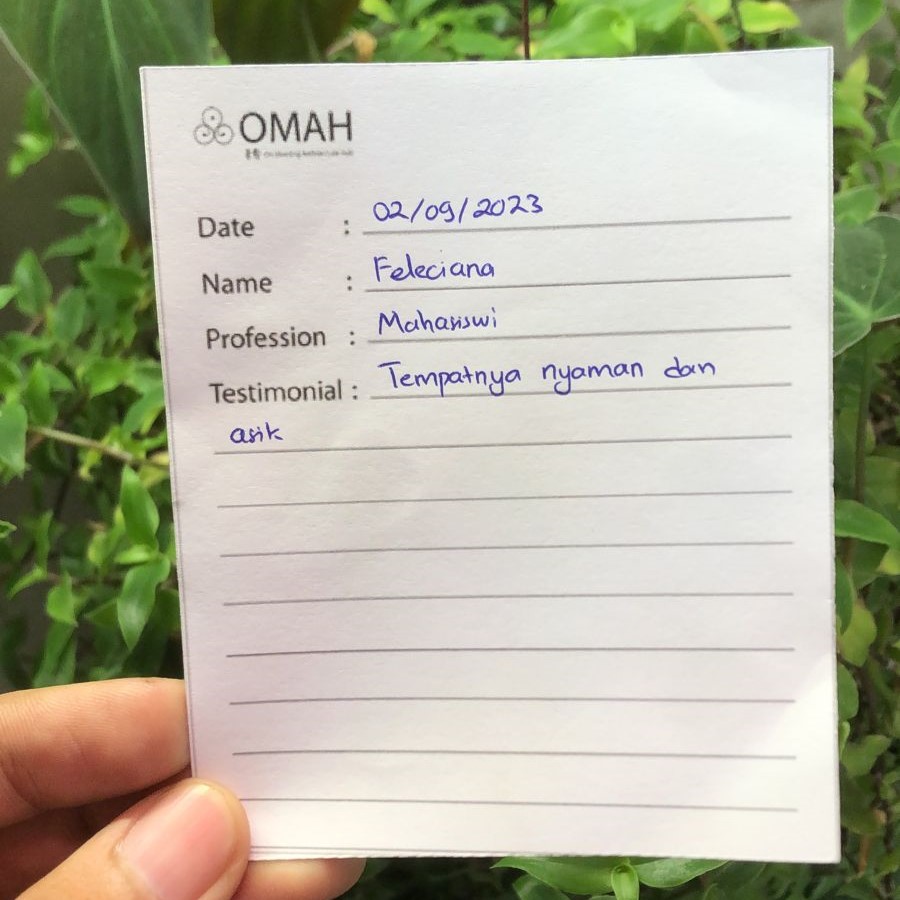 OMAH
Date : 02/09/2023
Name : Feleciana
Profession : Mahasiswi
Testimonial : Tempatnya nyaman dan
asik